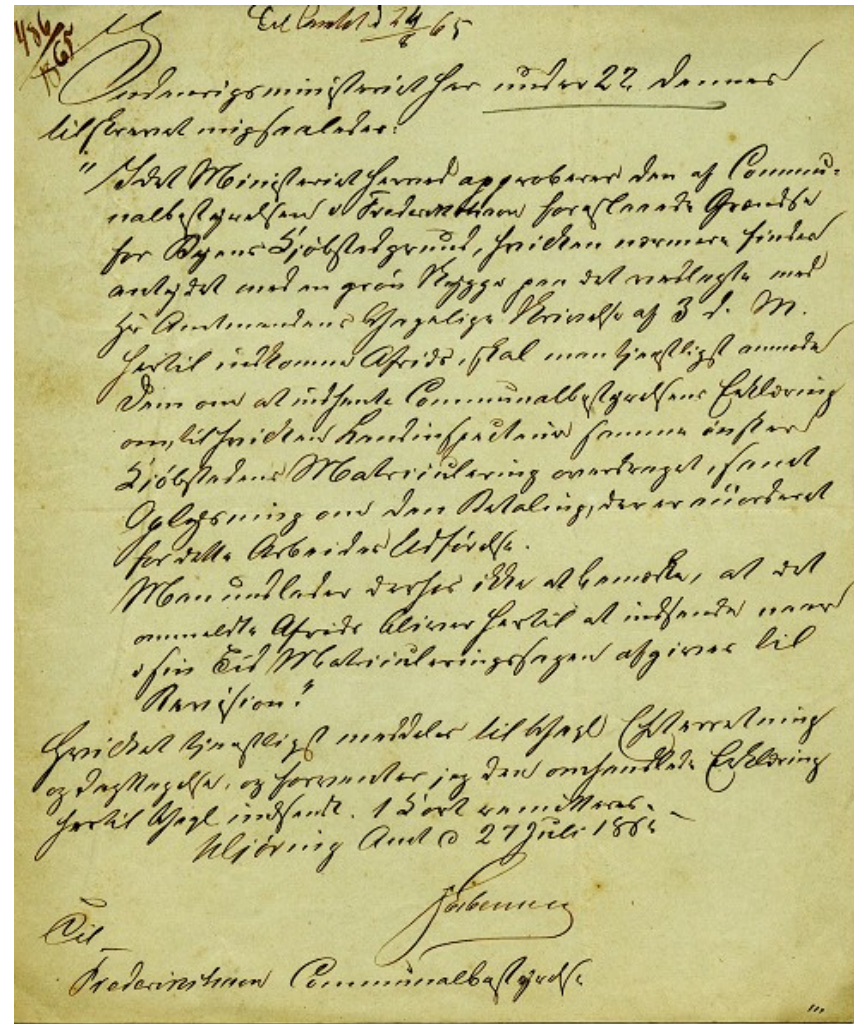 486/1865
Til Amtet d 24/8 65
Indenrigsministeriet har under 22 dennes
tilskrevet mig saaledes:
"Idet Ministeriet herved approberer den af Commu-
nalbestyrelsen i Frederikshavn foreslaaede Grændse
for Byens Kjøbstadgrund, hvilken nærmere findes
antydet med en grøn Skygge paa det vedlagte med
Hr Amtmandens behagelige Skrivelse af 3 d. M.
hertil indkomne Afrids, skal man tjenstligst anmode
Dem om at indhente Communalbestyrelsens Erklæring
om, til hvilken Landinspecteur samme ønsker
Kjøbstadens Matriculering overdraget, samt
Oplysning om den Betaling, der er accorderet
for dette Arbeides Udførelse.
Man undlader derhos ikke at bemærke, at det
anmeldte Afrids bliver hertil at indsende naar
i sin Tid Matriculeringssagen afgives til
Revision."
Hvilket tjenstligst meddeles til behagl Efterretning
og Iagttagelse, og forventer jeg den omhandlede Erklæring
hertil behagl indsendt. 1 Kort remitteres.
Hjørring Amt d 27 Juli 1865
Til
Frederikshavn Communalbestyrelse